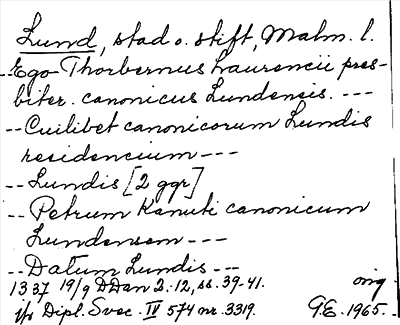 Lund, stad o. stift, Malm. l.
--Ego Thorbernus Laurencii pres-
biter. canonicus Lundensis. ---
--Cuilibet canonicorum Lundis
residencium ---
--Lundis [2 ggr]
--Petrum Kanuti canonicum
Lundensem ---
--Datum Lundis ---
1337 19/9 DDan 2:12, ss. 39-41. orig.
jfr Dipl. Svec. IV 574 nr. 3319. G.E. 1965.